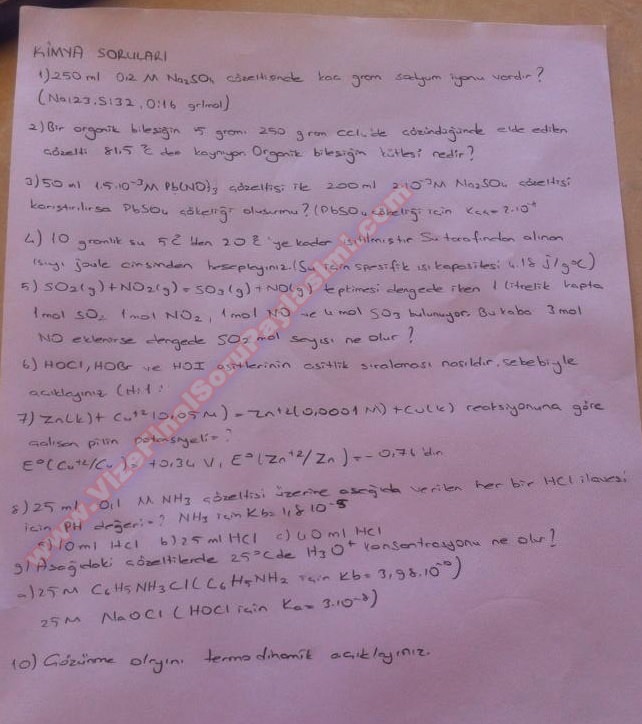 KİMYA SORULARI
1) 250 ml 0,2 M Na2SO4 çözeltisinde kaç gram sodyum iyonu vardır?
(Na:23, S:32, O:16 gr/mol)
2) Bir organik bileşiğin 5 gramı 250 gram CCl4'de çözündüğünde elde edilen
çözelti 81,5 °C den kaynıyor. Organik bileşiğin kütlesi nedir?
3) 50 ml 1.5.10-3M Pb(NO)3 çözeltisi ile 200 ml 2.10-3M Na2SO4 çözeltisi
karıştırılırsa PbSO4 çökeliği oluşur mu? (PbSO4 çökeliği için
4) 10 gramlık su 5 °C 'den 20 °C 'ye kadar ısıtılmıştır. Su tarafından alınan
ısıyı joule cinsinden hesaplayınız. (Su için spesifik ısı kapasitesi 4.18 j/g°C)
5) SO2(g) + NO2(g) = SO3(g) + NO(g) tepkimesi dengede iken 1 litrelik kapta
1 mol SO2 1 mol NO2, 1 mol NO ve 4 mol SO3 bulunuyor. Bu kaba 3 mol
NO eklenirse dengede SO2 mol sayısı ne olur?
6) HOCl, HOBr ve HOI asitlerinin asitlik sıralaması nasıldır, sebebiyle
açıklayınız
7) Zn(k) + Cu+2(0,05 M) = Zn+2(0,0001 M) + Cu(k) reaksiyonuna göre
çalışan pilin potansiyeli = ?
E°(Cu+2/Cu) = +0,34 V, E°(Zn+2/Zn) = -0,76 'dır
8) 25 ml 0,1 M NH3 çözeltisi üzerine aşağıda verilen her bir HCl ilavesi
için PH değeri = ? NH3 için Kb = 1,8 10-5
a) 10 ml HCl b) 25 ml HCl c) 40 ml HCl
9) Aşağıdaki çözeltilerde 25°C de H3O+ konsantrasyonu ne olur?
a) 25 M C6H5NH3Cl (C6H5NH2 için Kb = 3,98.10
25 M NaOCl (HOCl için Ka = 3.10-8)
10) Çözünme olayını termodinamik açıklayınız.
www.VizeFinalSoruPaylasimi.com